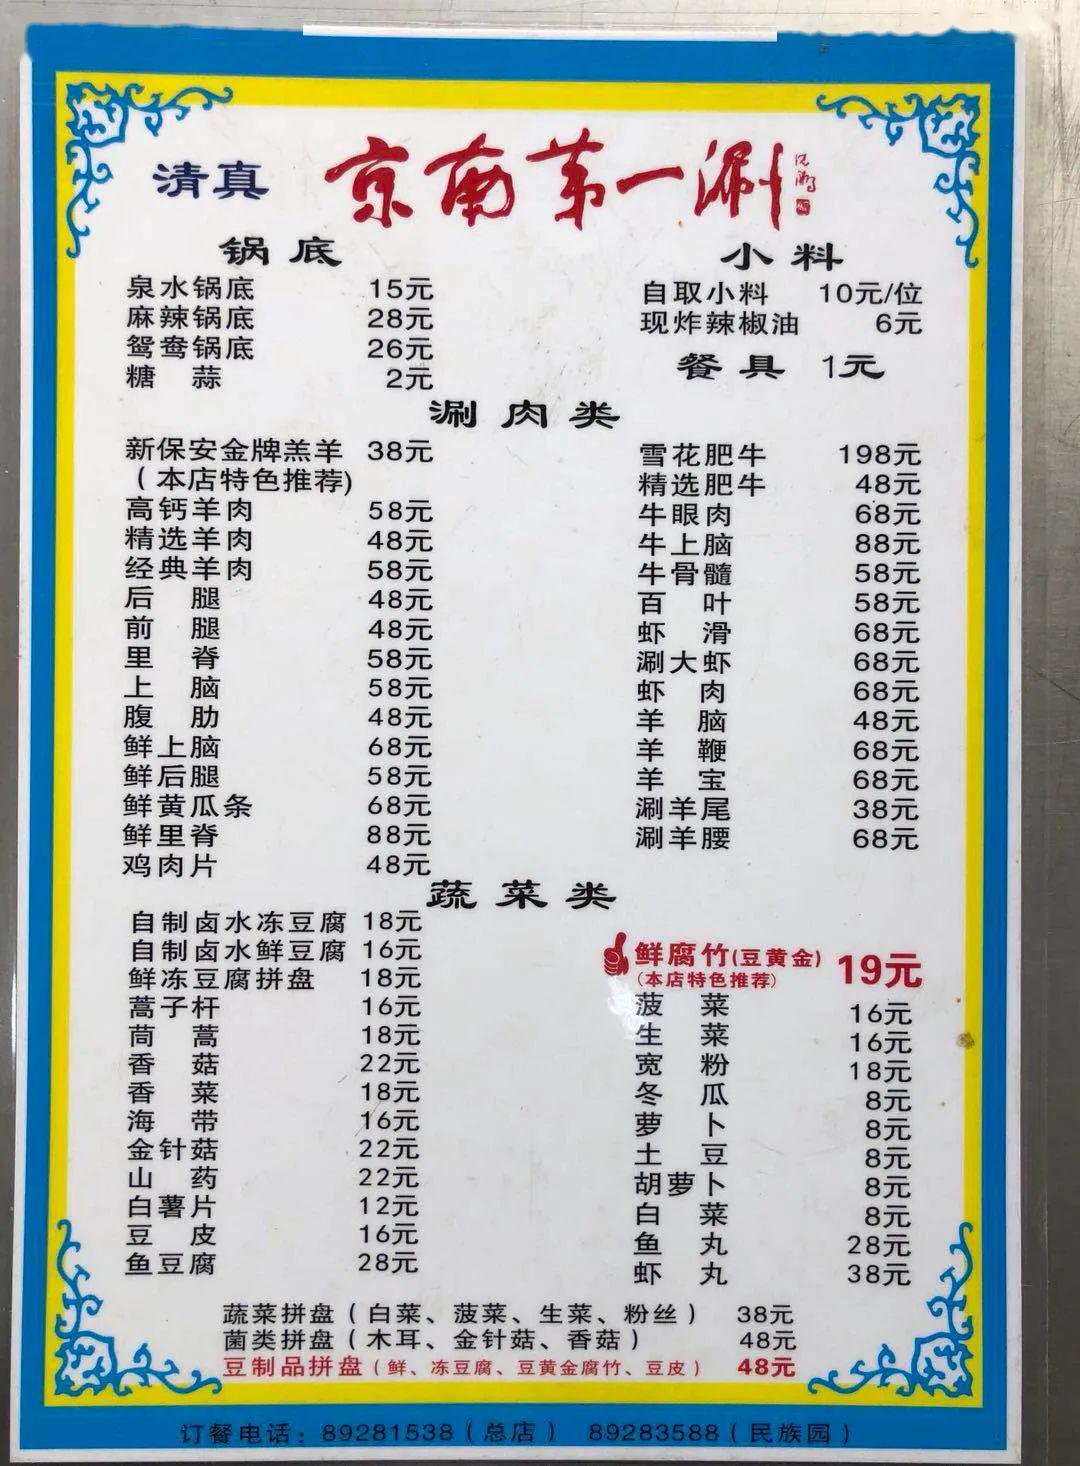 清真 京南第一涮
锅底
泉水锅底 15元
麻辣锅底 28元
鸳鸯锅底 26元
糖蒜 2元
小料
自取小料 10元/位
现炸辣椒油 6元
餐具 1元
涮肉类
新保安金牌羔羊 38元
（本店特色推荐)
高钙羊肉 58元
精选羊肉 48元
经典羊肉 58元
后腿 48元
前腿 48元
里脊 58元
上脑 58元
腹肋 48元
鲜上脑 68元
鲜后腿 58元
鲜黄瓜条 68元
鲜里脊 88元
鸡肉片 48元
雪花肥牛 198元
精选肥牛 48元
牛眼肉 68元
牛上脑 88元
牛骨髓 58元
百叶 58元
虾滑 68元
涮大虾 68元
虾肉 68元
羊脑 48元
羊鞭 68元
羊宝 68元
涮羊尾 38元
涮羊腰 68元
蔬菜类
自制卤水冻豆腐 18元
自制卤水鲜豆腐 16元
鲜冻豆腐拼盘 18元
蒿子杆 16元
茼蒿 18元
香菇 22元
香菜 18元
海带 16元
金针菇 22元
山药 22元
白薯片 12元
豆皮 16元
鱼豆腐 28元
鲜腐竹(豆黄金) 19元
(本店特色推荐)
菠菜 16元
生菜 16元
宽粉 18元
冬瓜 8元
萝卜 8元
土豆 8元
胡萝卜 8元
白菜 8元
鱼丸 28元
虾丸 38元
蔬菜拼盘（白菜、菠菜、生菜、粉丝） 38元
菌类拼盘（木耳、金针菇、香菇） 48元
豆制品拼盘（鲜、冻豆腐、豆黄金腐竹、豆皮） 48元
订餐电话：89281538（总店） 89283588（民族园）